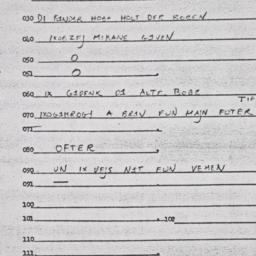 030 DI KINDER HOBN HOLT DER BOBEN
040 IX MIKANE GIVEN
050 O
051 O
060 IX GEDENK DI ALTE BOBE
TIF
070 A BRIV FUN MAJN FOTER
071
080 OFTER
090 UN IX VEJS NIT FUN VEMEN
091
100
101 102
110
111